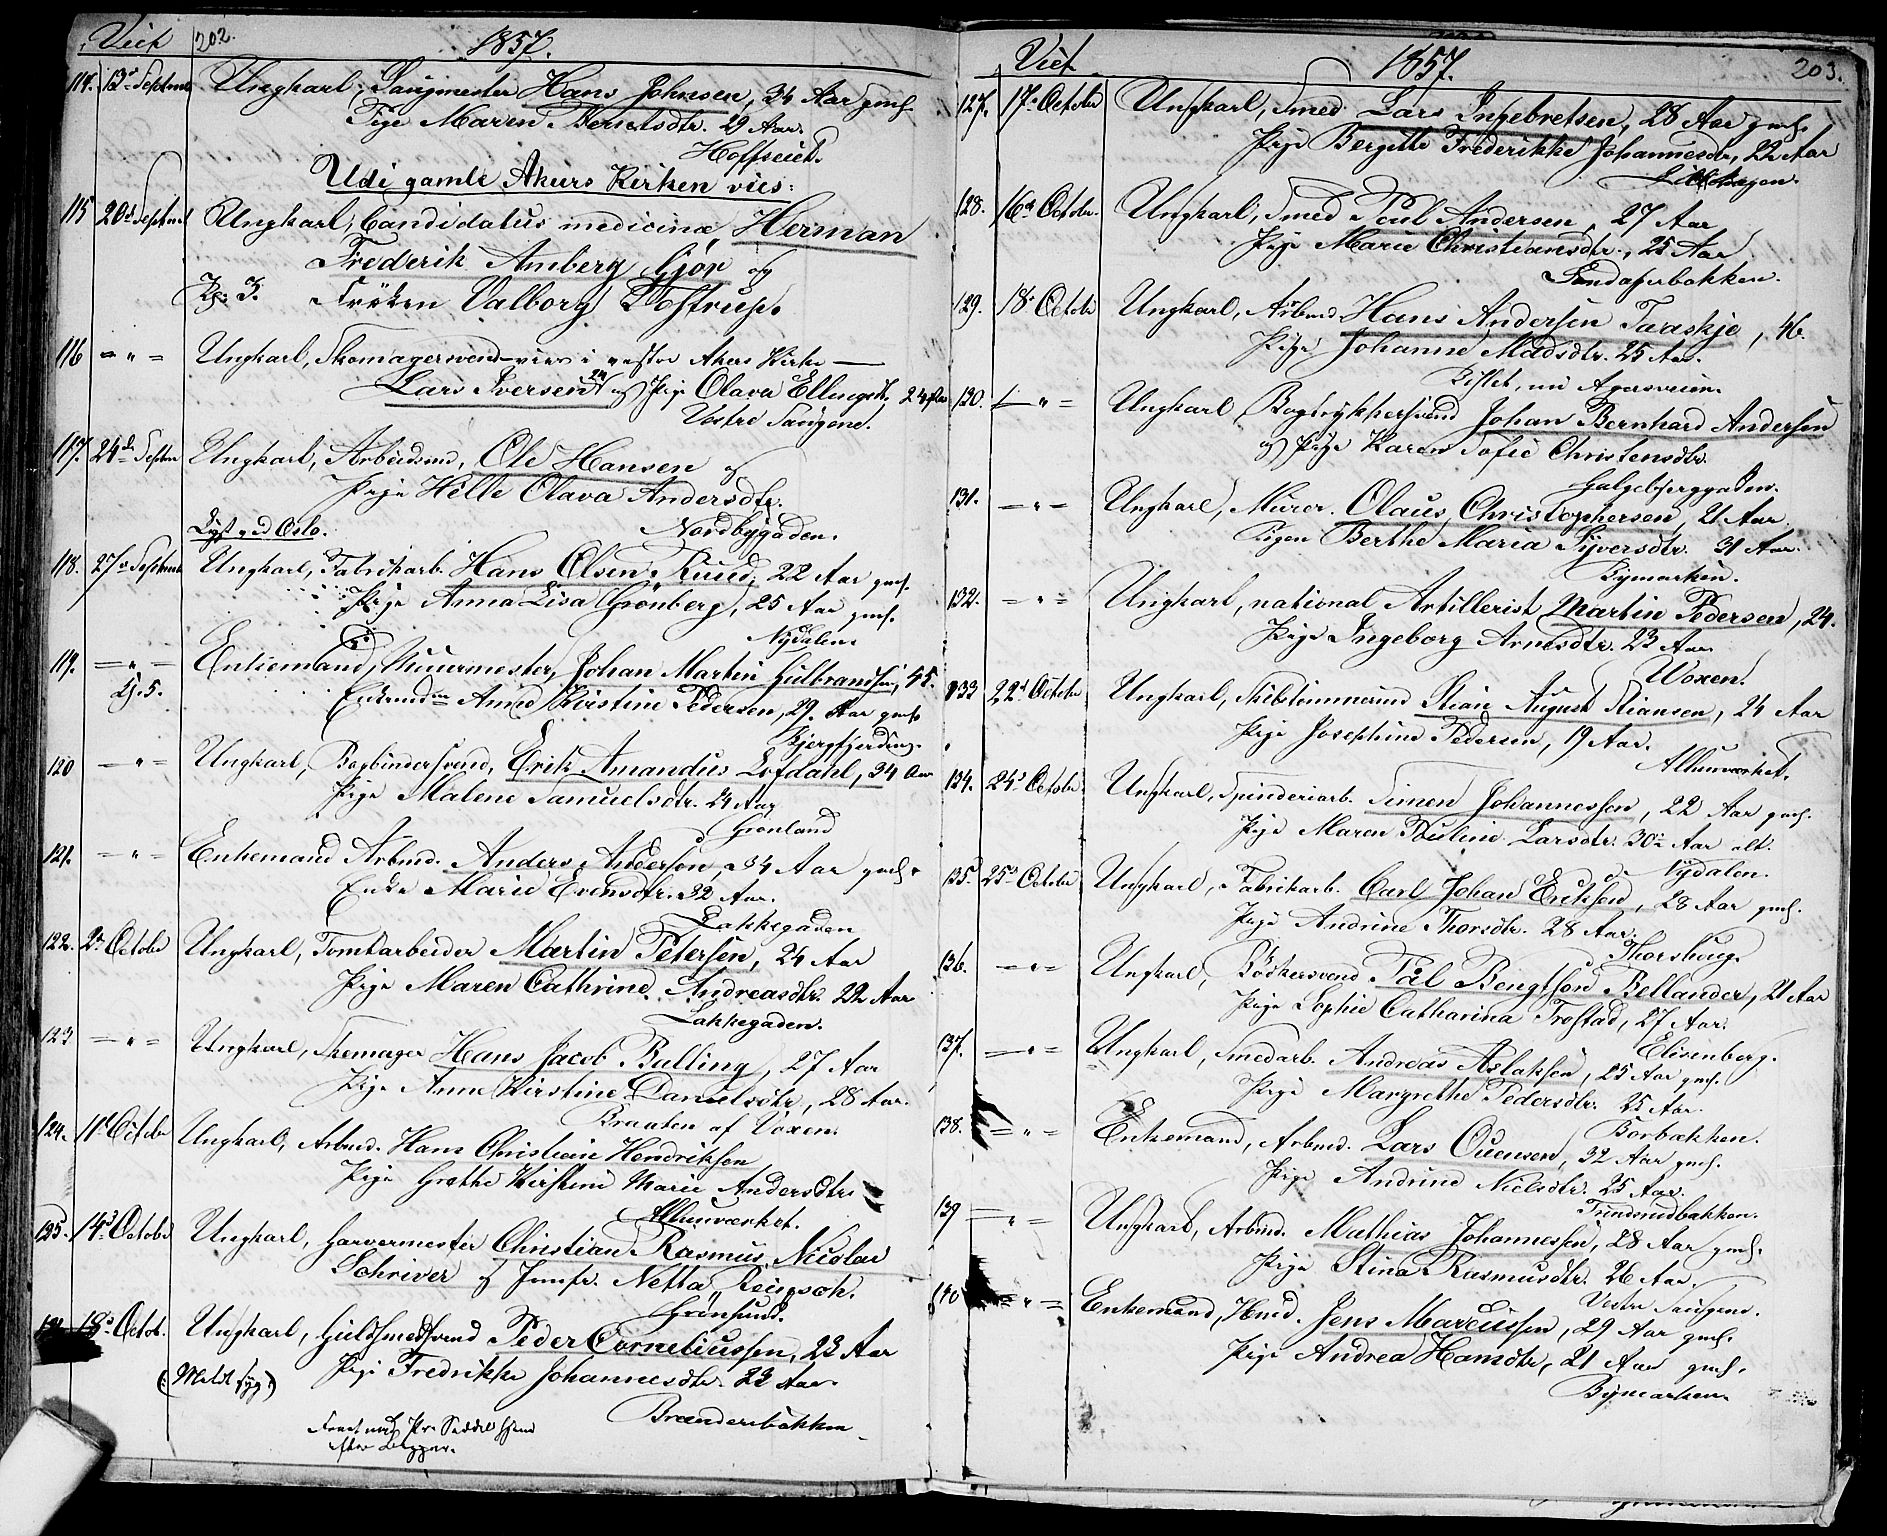 Viet 202. 1857.
114. 13de Septmbr Ungkarl, Saugmester Hans Johnsen, 34 Aar gml.
Pige Maren Berntsdtr. 29 Aar.
Hoffseiet.
Udi gamle Akers Kirken vies:
115 20de Septmbr Ungkarl, Candidatus medicinæ, Herman
Frederik Amberg Gjör og
Kp. 3. Fröken Valborg Tostrup.
116 – " – Ungkarl, Skomagersvend vies i vestre Akers Kirke
Lars Iversen 24 og Pige Olava Ellingsdt. 24 Aar
Vestre Saugene.
117. 24de Septbr Ungkarl, Arbeidsmd, Ole Hansen og
Pige Helle Olava Andersdtr.
Lyst ved Oslo. Nordbygaden.
118. 27de Septmbr Ungkarl, Fabrikarb. Hans Olsen Ruud, 22 Aar gml.
Pige Anna Lisa Grönberg, 25 Aar gml.
Nydalen
119. – " – Enkemand, Muurmester, Johan Martin Gulbrandsen, 45.
Kp. 5. Enkemadm Anne Kirstine Pedersen, 29. Aar gml.
Bjergfjerding.
120 – " – Ungkarl, Bogbindersvend, Erik Amandus Lofdahl, 34 Aar
Pige Malene Samuelsdtr. 24 Aar
Grönland
121. – " – Enkemand Arbmd. Anders Andersen, 34 Aar gml.
Enke Marie Evensdtr. 32 Aar.
Lakkegaden
122. 2den Octobr Ungkarl, Tomtarbeider Martin Petersen, 24 Aar
Pige Maren Cathrine Andreasdtr. 22 Aar
Lakkegaden.
123 – " – Ungkarl, Skomager Hans Jacob Bulling, 27 Aar
Pige Anne Kirstine Danielsdtr, 28 Aar.
Braaten af Voxen.
124. 11te Octobr Ungkarl, Arbmd. Hans Christian Hendriksen
Pige Grethe Kirstine Marie Andersdtr.
Allunværket.
125. 14de Octobr Ungkarl, Garvermester Christian Rasmus Nicolai
Schriver og Jomfr. Netta Reinsch.
Grönsund.
18de Octob. Ungkarl, Guldsmedsvend Peder Corneliussen, 23 Aar
(Meldt syg.) Pige Fredrikke Johannesdtr. 22 Aar.
Brænderibakken
Viet 1857. 203.
127. 17de Octobr Ungkarl, Smed Lars Ingebretsen, 28 Aar gml.
Pige Bergitte Frederikke Johannesdtr, 22 Aar
128. 16de Octobr. Ungkarl, Smed Poul Andersen, 27 Aar
Pige Marie Christiansdtr., 25 Aar
Sandagerbakken.
129. 18de Octobr Ungkarl, Arbmd Hans Andersen Taraskje, 46.
Pige Johanne Madsdtr. 25 Aar.
Bislet,
130. – " – Ungkarl Bogtrykkersvend Johan Bernhard Andersen
og Pige Karen Sofie Christensdtr.
Galgebjerggaden.
131. – " – Ungkarl, Murer. Olaus Christophersen, 21 Aar
Pigen Berthe Maria Syversdtr. 31 Aar.
Bymarken.
132. – " – Ungkarl, national Artillerist Martin Pedersen, 24.
Pige Ingeborg Arnesdtr. 23 Aar
Woxen.
133 22de Octobr Ungkarl, Skibstømmermd Stian August Stiansen, 24 Aar
Pige Josephine Pedersen, 19 Aar.
Allunværket.
134. 24de Octobr. Ungkarl, Spinderiarb. Simen Johannessen, 22 Aar gml.
Pige Maren Pauline Larsdtr. 30 Aar alt.
Nydalen.
135. 25de Octobr Ungkarl, Fabrikarb. Carl Johan Eriksen, 28 Aar gml.
Pige Andrine Thorsdtr. 28 Aar.
Thorshoug.
136. – " – Ungkarl, Bödkersvend Pål Bengtson Bellander, 21 Aar
Pige Sophie Catharina Frostad, 27 Aar.
Elisenberg.
137. – " – Ungkarl, Smedarb. Andreas Aslaksen, 25 Aar gml.
Pige Margrethe Pedersdtr. 25 Aar.
Borbakken.
138. – " – Enkemand, Arbmd. Lars Ouensen, 32 Aar gml.
Pige Andrine Nielsdtr. 25 Aar.
139 – " – Ungkarl, Arbmd. Mathias Johannessen, 28 Aar gml.
Pige Stina Rasmusdtr. 26 Aar.
Vestre Saugene.
140 – " – Enkemand, Hmd. Jens Marcussen, 29 Aar gml.
Pige Andrea Hansdtr, 21 Aar gml.
Bymarken.